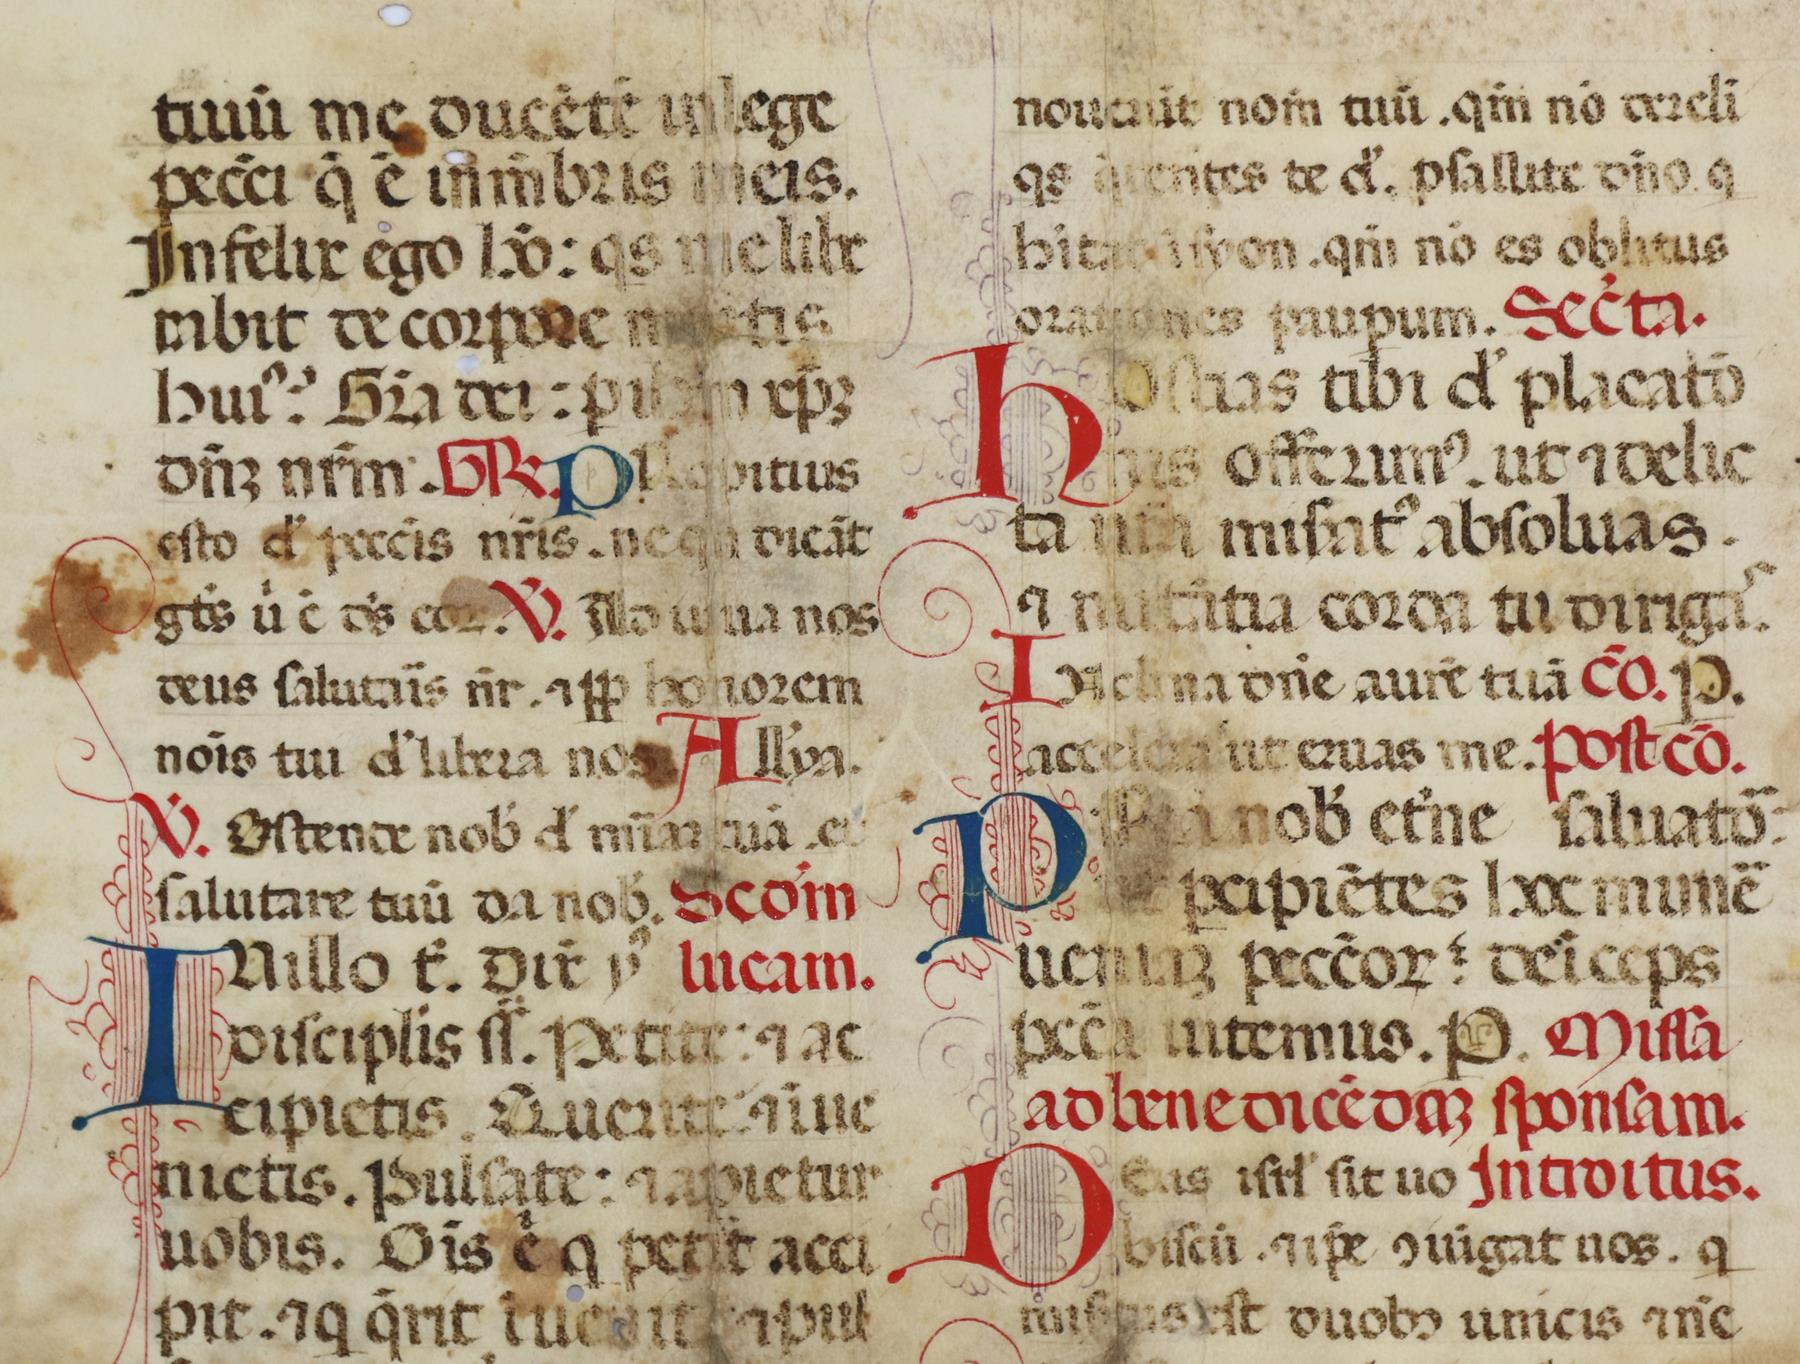 tuuū me ducētē in lege
pecc̄i q̄ ē in m̄bris meis.
Infelix ego hō: q̄s me libe
rabit de corpore mortis
hui᾽? Gr̄a dei: p ih̄m xp̄ꝫ
dn̄ꝫ nr̄m. GR. Propitius
esto d᾽ pecc̄is nr̄is. ne qn̄ dicāt
gēts u᷑ ē d᷑s eor. V᷑. Adiuua nos
deus salutaris nr̄. ⁊ ꝓp honorem
nois tui d᷑ libera nos Allya.
V᷑. Ostende nob᷑ d᷑ mīam tuā. et
salutare tuū da nob᷑. Scd᷑m
IN illo t᷑. Dix᷑ yꝰ lucam.
discipl᷑is s᷑. Petite: ⁊ ac
cipietis. Querite: ⁊ īue
nietis. Pulsate: ⁊ apietur
uobis. Ois e᷑ q petit acci
pit. ⁊ q q̄rit īuenit ⁊ pul
nouerūt nom̄ tuū. qm̄ nō dereli
q̄s q̄rentes te d᷑. psallite dn̄o. q
hītat ī syon. qm̄ nō es oblitus
orationes paupum. Sec᷑ta.
HOstias tibi d᷑ placatō
nis offerimꝰ. ut ⁊ delic
ta nr̄a miserat᷑ absoluas.
⁊ nutātia corda tu dirigā.
INclina dn̄e aurē tuā cō. P.
accelera ut eruas me. post cō.
PRestā nob᷑ et᷑ne saluatō.
ut pcipiētes hoc munē
ueniaꝫ pecc̄oꝝ: deīceps
pecc̄a uitemus. P. Missa
ad benedicēdaꝫ sponsam.
DEus isrl᷑ sit uo Introitus.
biscū. ⁊ ip̄e ↄiūgat uos. q
misertus est duobꝫ unicis ⁊ nc̄